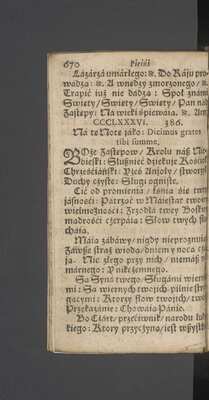 670 Pieśni
Lazárzá umárłego: ꝛc. Do Ráju pro-
wadzą: ꝛc. A wnedzy zmorzonego/ ꝛc.
Trapić iuż nie dadzą: Społ znami
Swięty/ Swięty/ Swięty/ Pan nád
Zastępy: Ná wieki śpiewáią. ꝛc.
CCCLXXXVI. 386.
Ná tę Notę jáko: Dicimus grates
tibi summe,
BOże Zastępow/ Krolu náß Nie-
bieski: Słußnieć dziękuje Kośćioł
Chrześćiáński: Yżeś Anjoły/ stworzył
Duchy czyste: Sługi ogniste.
Cić od promienia/ láśnią się twey
jásnośći: Pátrząc w Májestat twoiey
wielmożnośći: Zrzodłá twey Boskiey
mądrośći czerpáią: Słow twych słu-
cháią.
Máią zabáwy/ nigdy nieproznuią
Záwße straż wiodą/ dniem y nocą czu-
ią. Nic złego przy nich/ niemáß
márnego: Y nikczemnego.
Są Syná twego Sługámi wierny-
mi: Są wiernych twoich pilnie strze-
gącymi: Ktorzy słow twojich/ twoje
Przekazánie: Chowáią Pánie.
Bo Czárt/ przećiwnik/ narodu ludz-
kiego: Ktory przyczyną/ iest wßystkie-